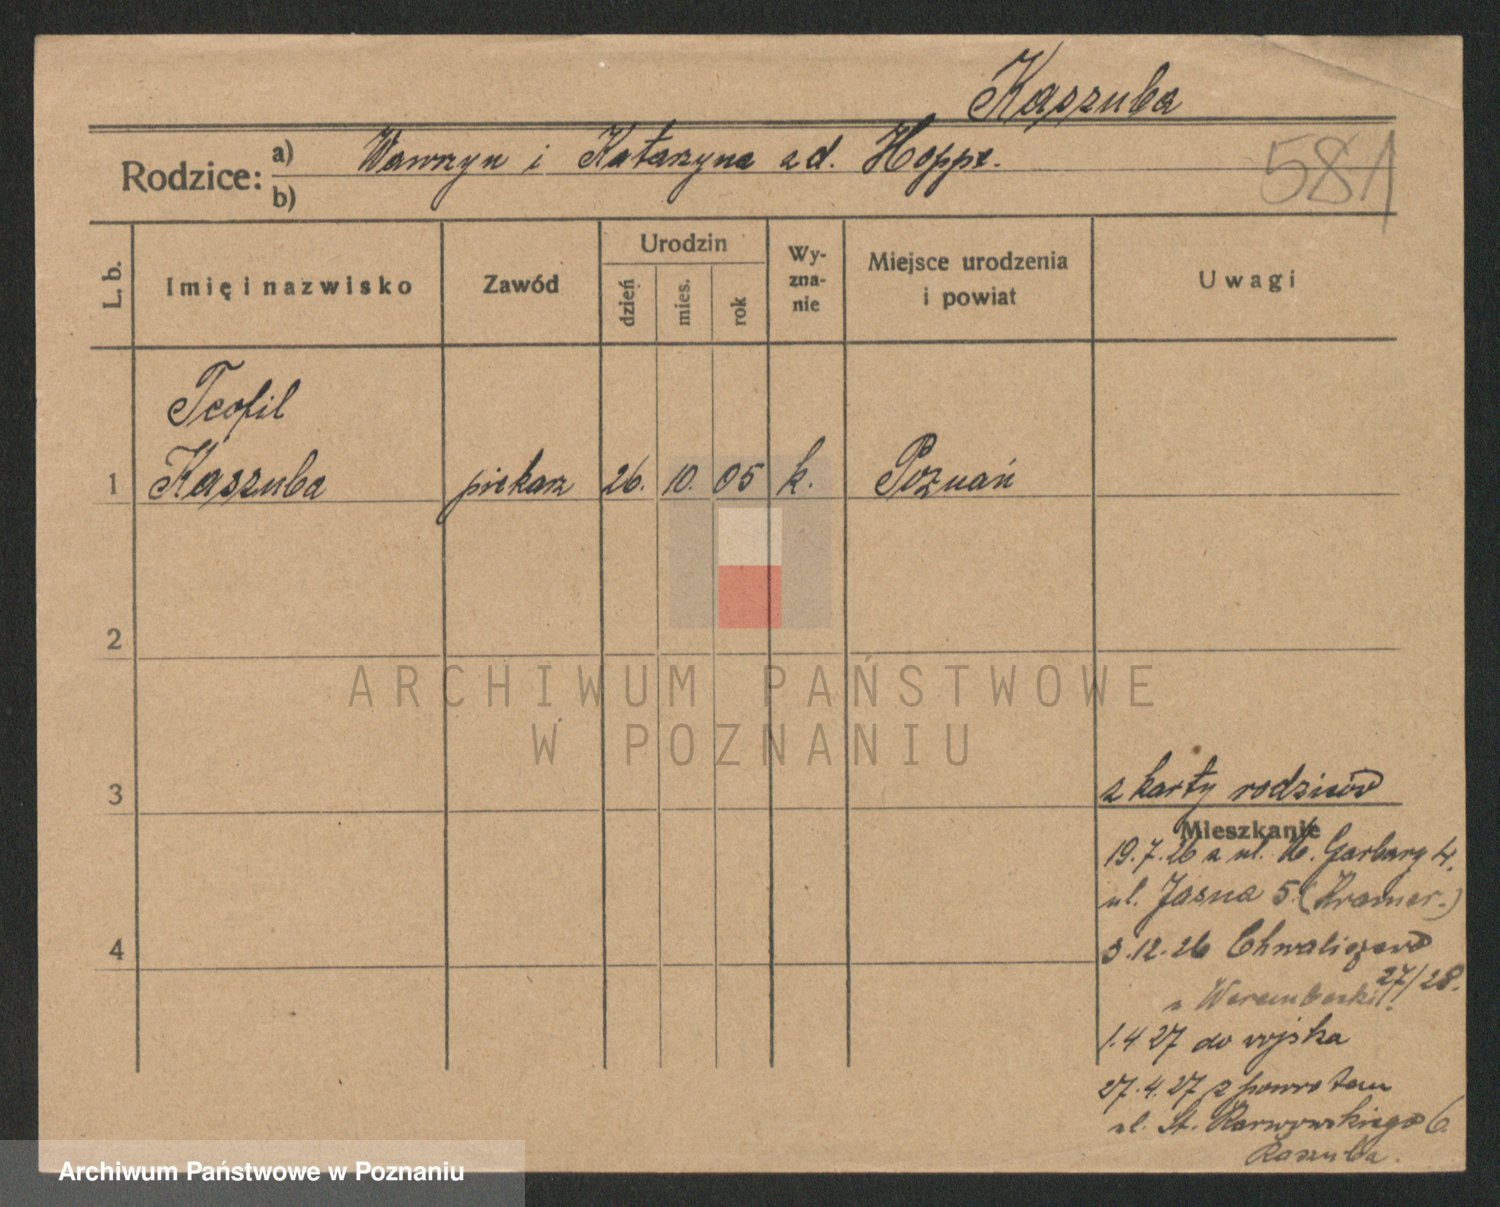 Kaszuba
581
Rodzice: a) Wawrzyn i Katarzyna z d. Hoppe.
b)
L. b.
Imię i nazwisko
Zawód
Urodzin
dzień
mies.
rok
Wy-
zna-
nie
Miejsce urodzenia
i powiat
Uwagi
Teofil
1 Kaszuba piekarz 26. 10. 05 k. Poznań
2
ARCHIWUM PAŃSTWOWE
W POZNANIU
3
z karty rodziców
Mieszkanie
19.7.26 z ul. W. Garbary 4.
ul. Jasna 5 (Kramer.)
4
3.12.26 Chwaliszewo
27/28.
1.4 27 do wojska
27.4.27 z powrotem
ul. St. Karwowskiego 6.
Kaszuba.
Archiwum Państwowe w Poznaniu